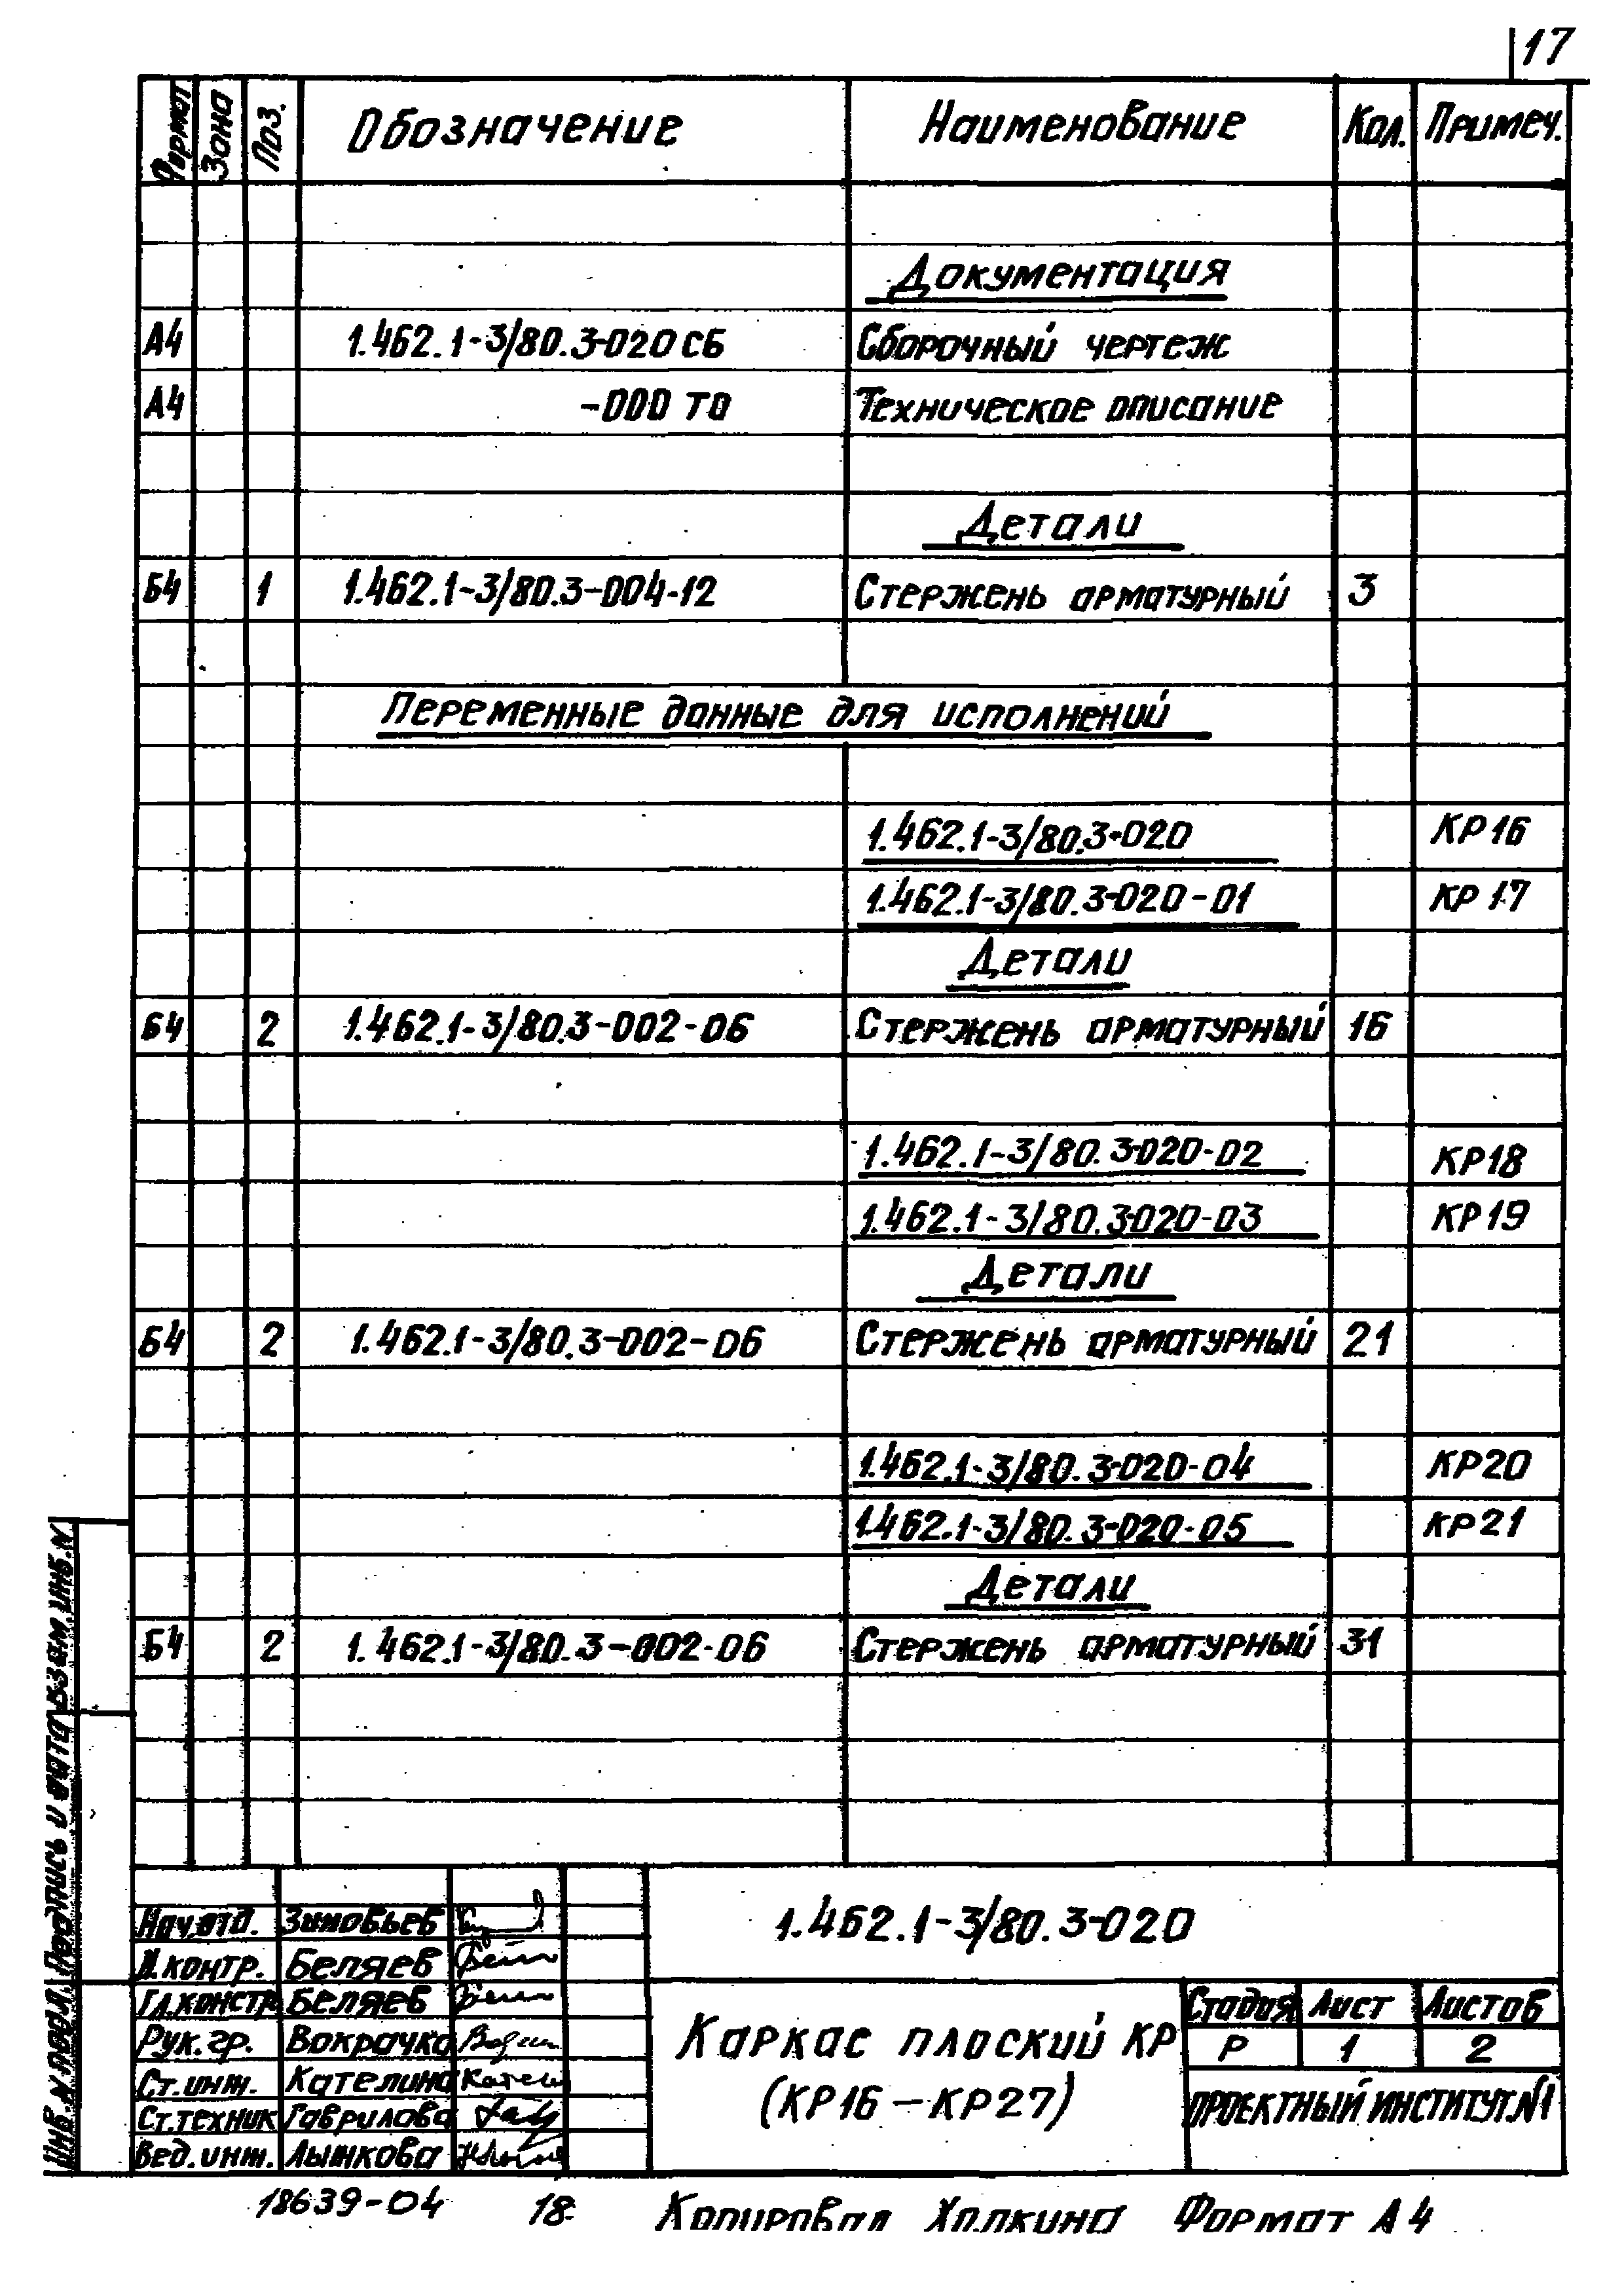 17
Формат Зона Поз. Обозначение Наименование Кол. Примеч.
Документация
А4 1.462.1-3/80.3-020 СБ Сборочный чертеж
А4 -000 ТО Техническое описание
Детали
Б4 1 1.462.1-3/80.3-004-12 Стержень арматурный 3
Переменные данные для исполнений
1.462.1-3/80.3-020 КР16
1.462.1-3/80.3-020-01 КР17
Детали
Б4 2 1.462.1-3/80.3-002-06 Стержень арматурный 16
1.462.1-3/80.3-020-02 КР18
1.462.1-3/80.3-020-03 КР19
Детали
Б4 2 1.462.1-3/80.3-002-06 Стержень арматурный 21
1.462.1-3/80.3-020-04 КР20
1.462.1-3/80.3-020-05 КР21
Детали
Б4 2 1.462.1-3/80.3-002-06 Стержень арматурный 31
Инв. N подл. Подпись и дата Взам. инв. N
Нач.отд. Зиновьев
Н.контр. Беляев
Гл.констр Беляев
Рук.гр. Вокрачко
Ст.инж. Кателина
Ст.техник Гаврилова
Вед.инж. Лышкова
1.462.1-3/80.3-020
Каркас плоский КР
(КР16 – КР27)
Стадия Лист Листов
Р 1 2
ПРОЕКТНЫЙ ИНСТИТУТ N1
18639-04 18 Копировал Холкина Формат А4